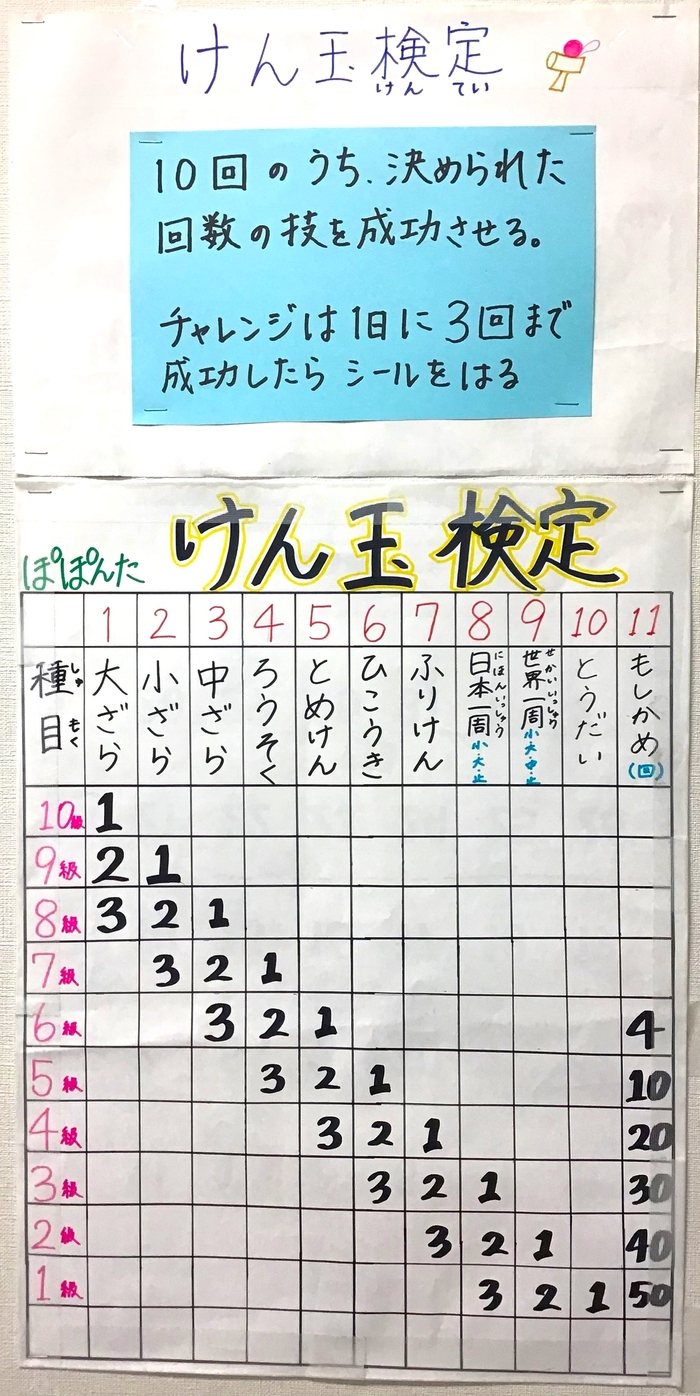 けん玉検定
けん てい
10回のうち、決められた
回数の技を成功させる。
チャレンジは1日に3回まで
成功したら シールをはる
ぽぽんた けん玉検定
1 2 3 4 5 6 7 8 9 10 11
種目 しゅもく 大ざら 小ざら 中ざら ろうそく とめけん ひこうき ふりけん 日本一周 にほんいっしゅう 小・大・止 世界一周 せかいいっしゅう 小・大・中・止 とうだい もしかめ(回)
10級 1
9級 2 1
8級 3 2 1
7級 3 2 1
6級 3 2 1 4
5級 3 2 1 10
4級 3 2 1 20
3級 3 2 1 30
2級 3 2 1 40
1級 3 2 1 50